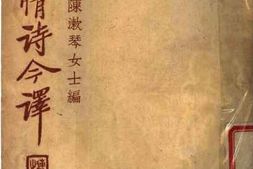 陳漱琴女士編
情诗今譯